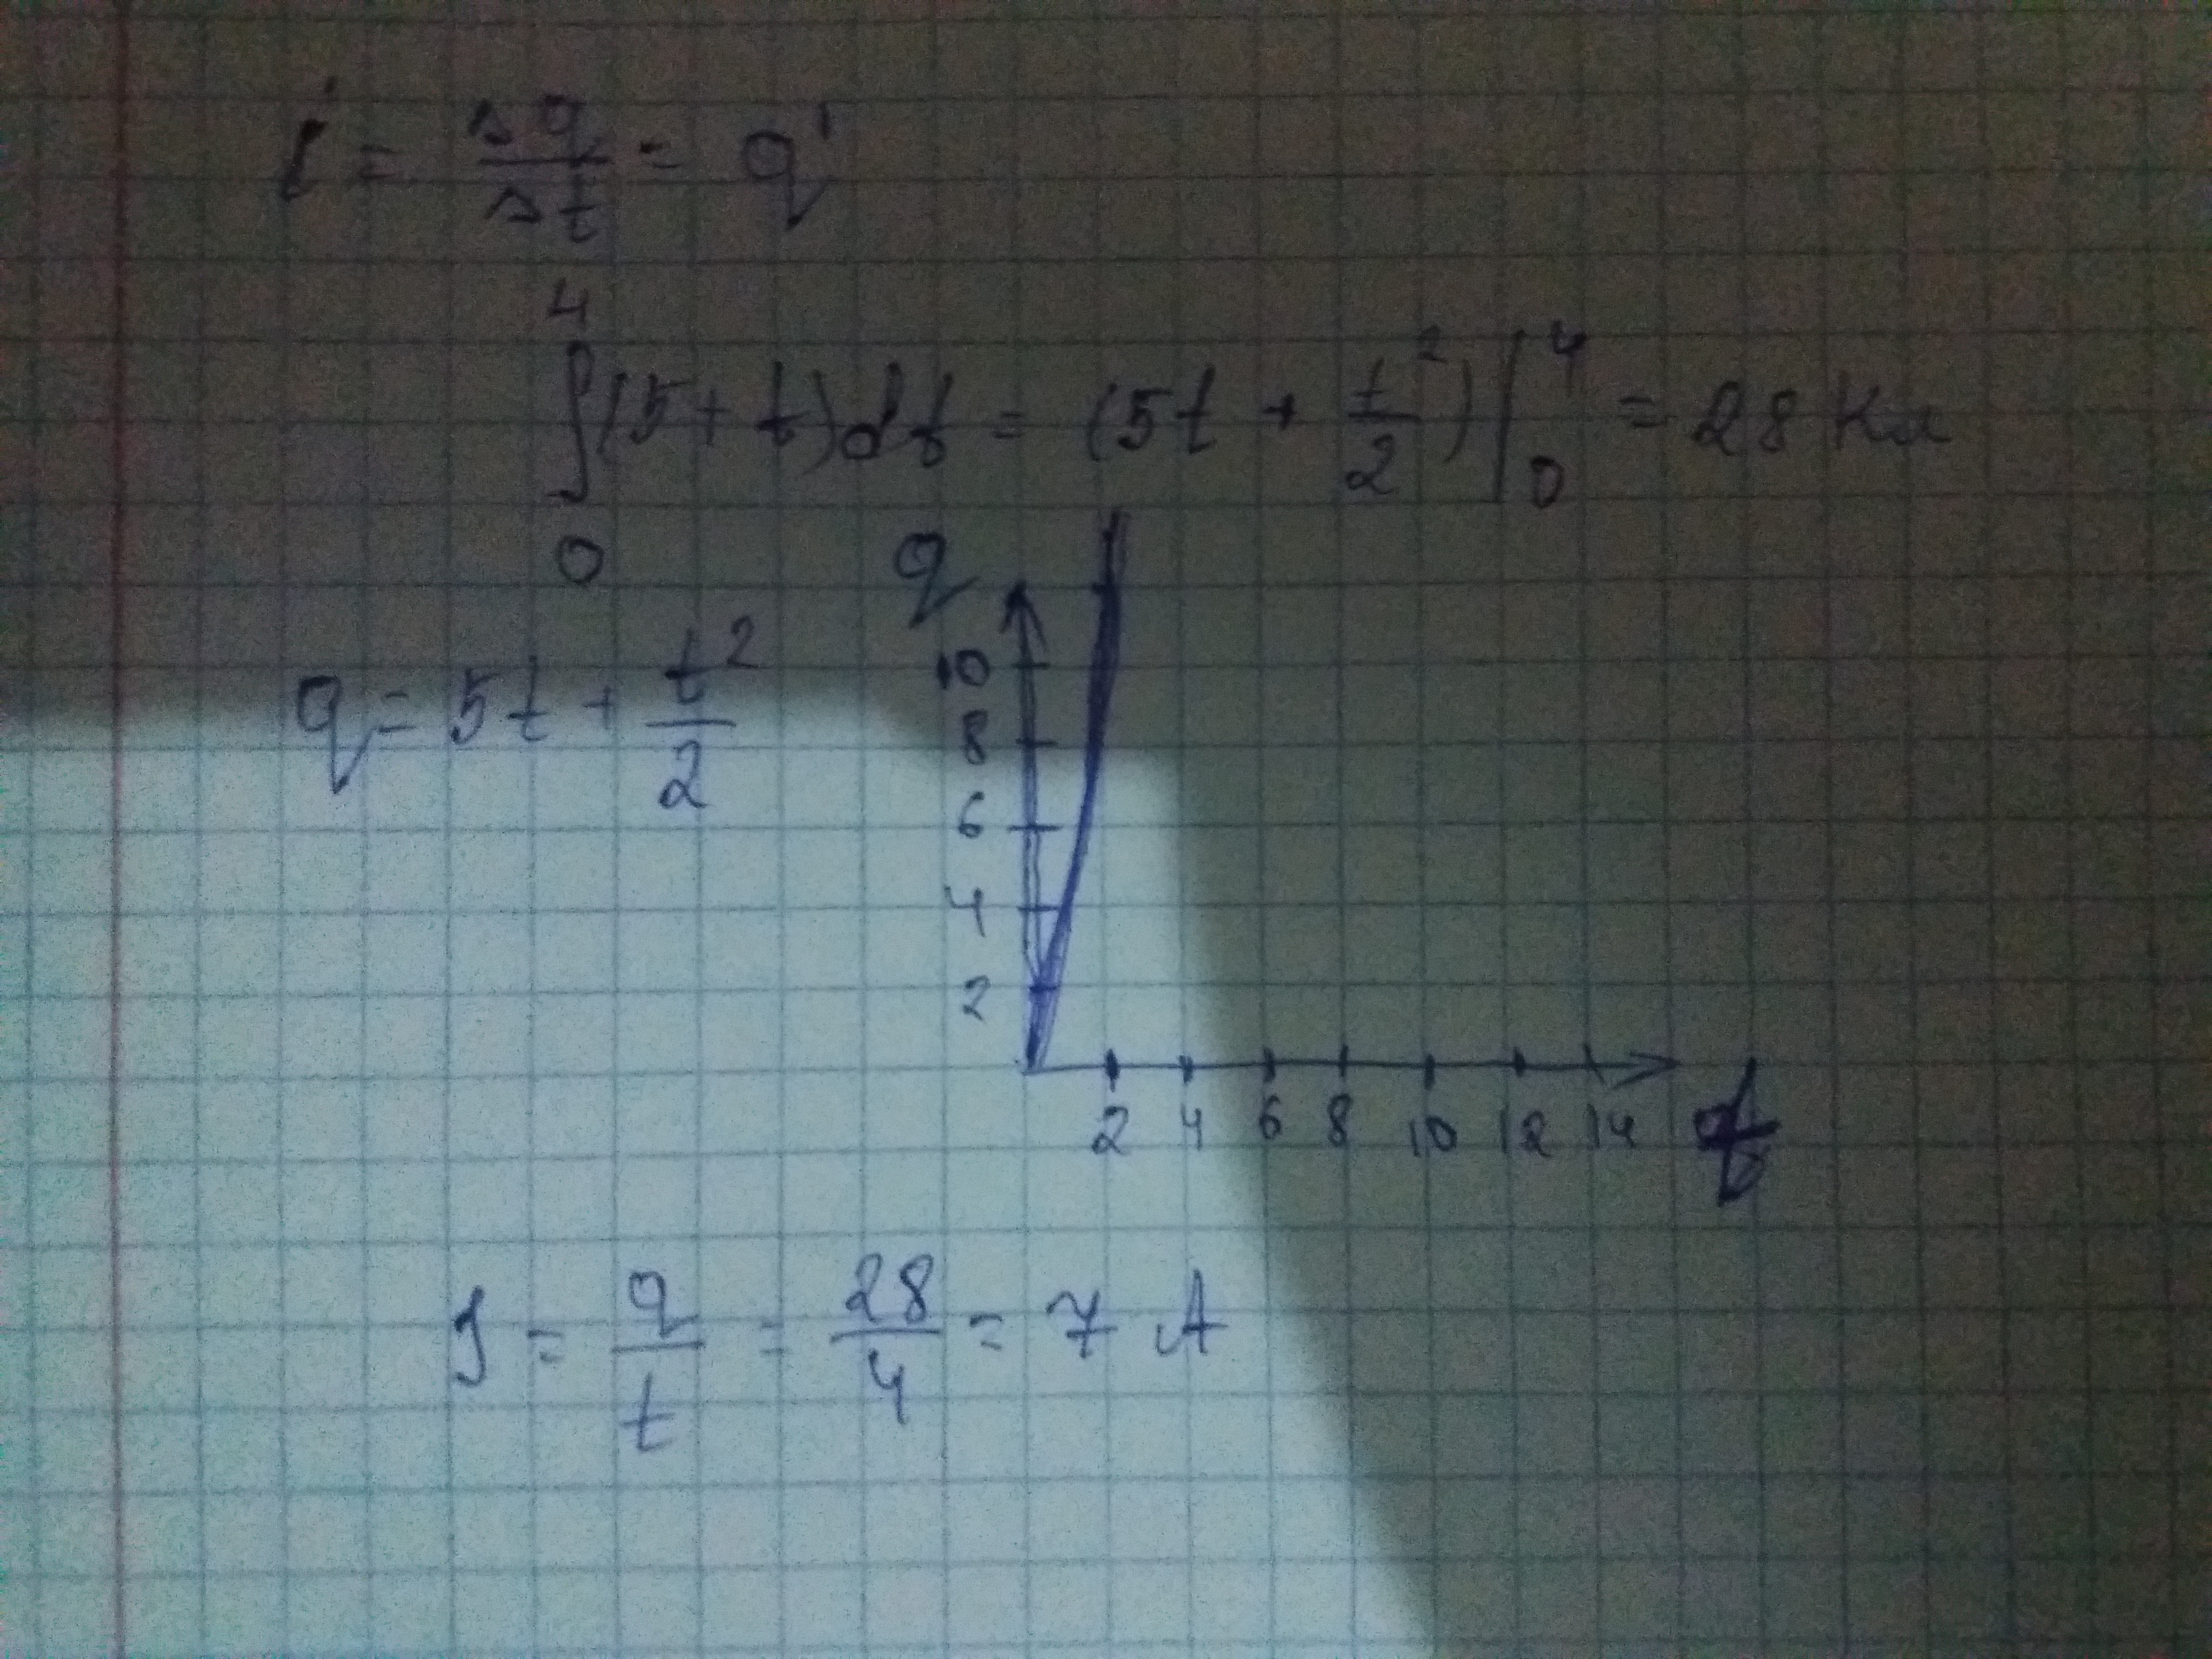 i = Δq/Δt = q'
∫₀⁴(5+t)dt = (5t + t²/2)|₀⁴ = 28 Кл
q
q = 5t + t²/2
10
8
6
4
2
2 4 6 8 10 12 14 t
I = q/t = 28/4 = 7 A